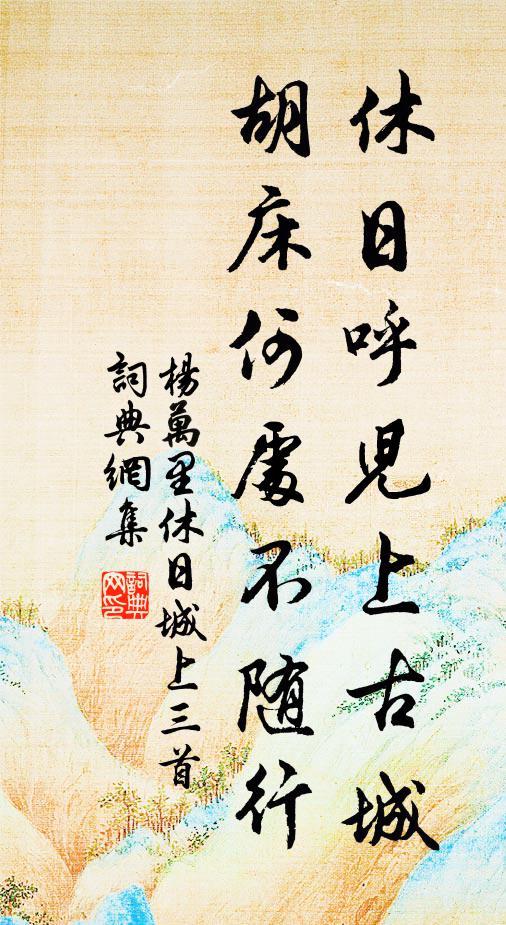 休日呼兒上古城
胡床何處不随行
楊萬里休日城上三首
詞典網集
詞典網印